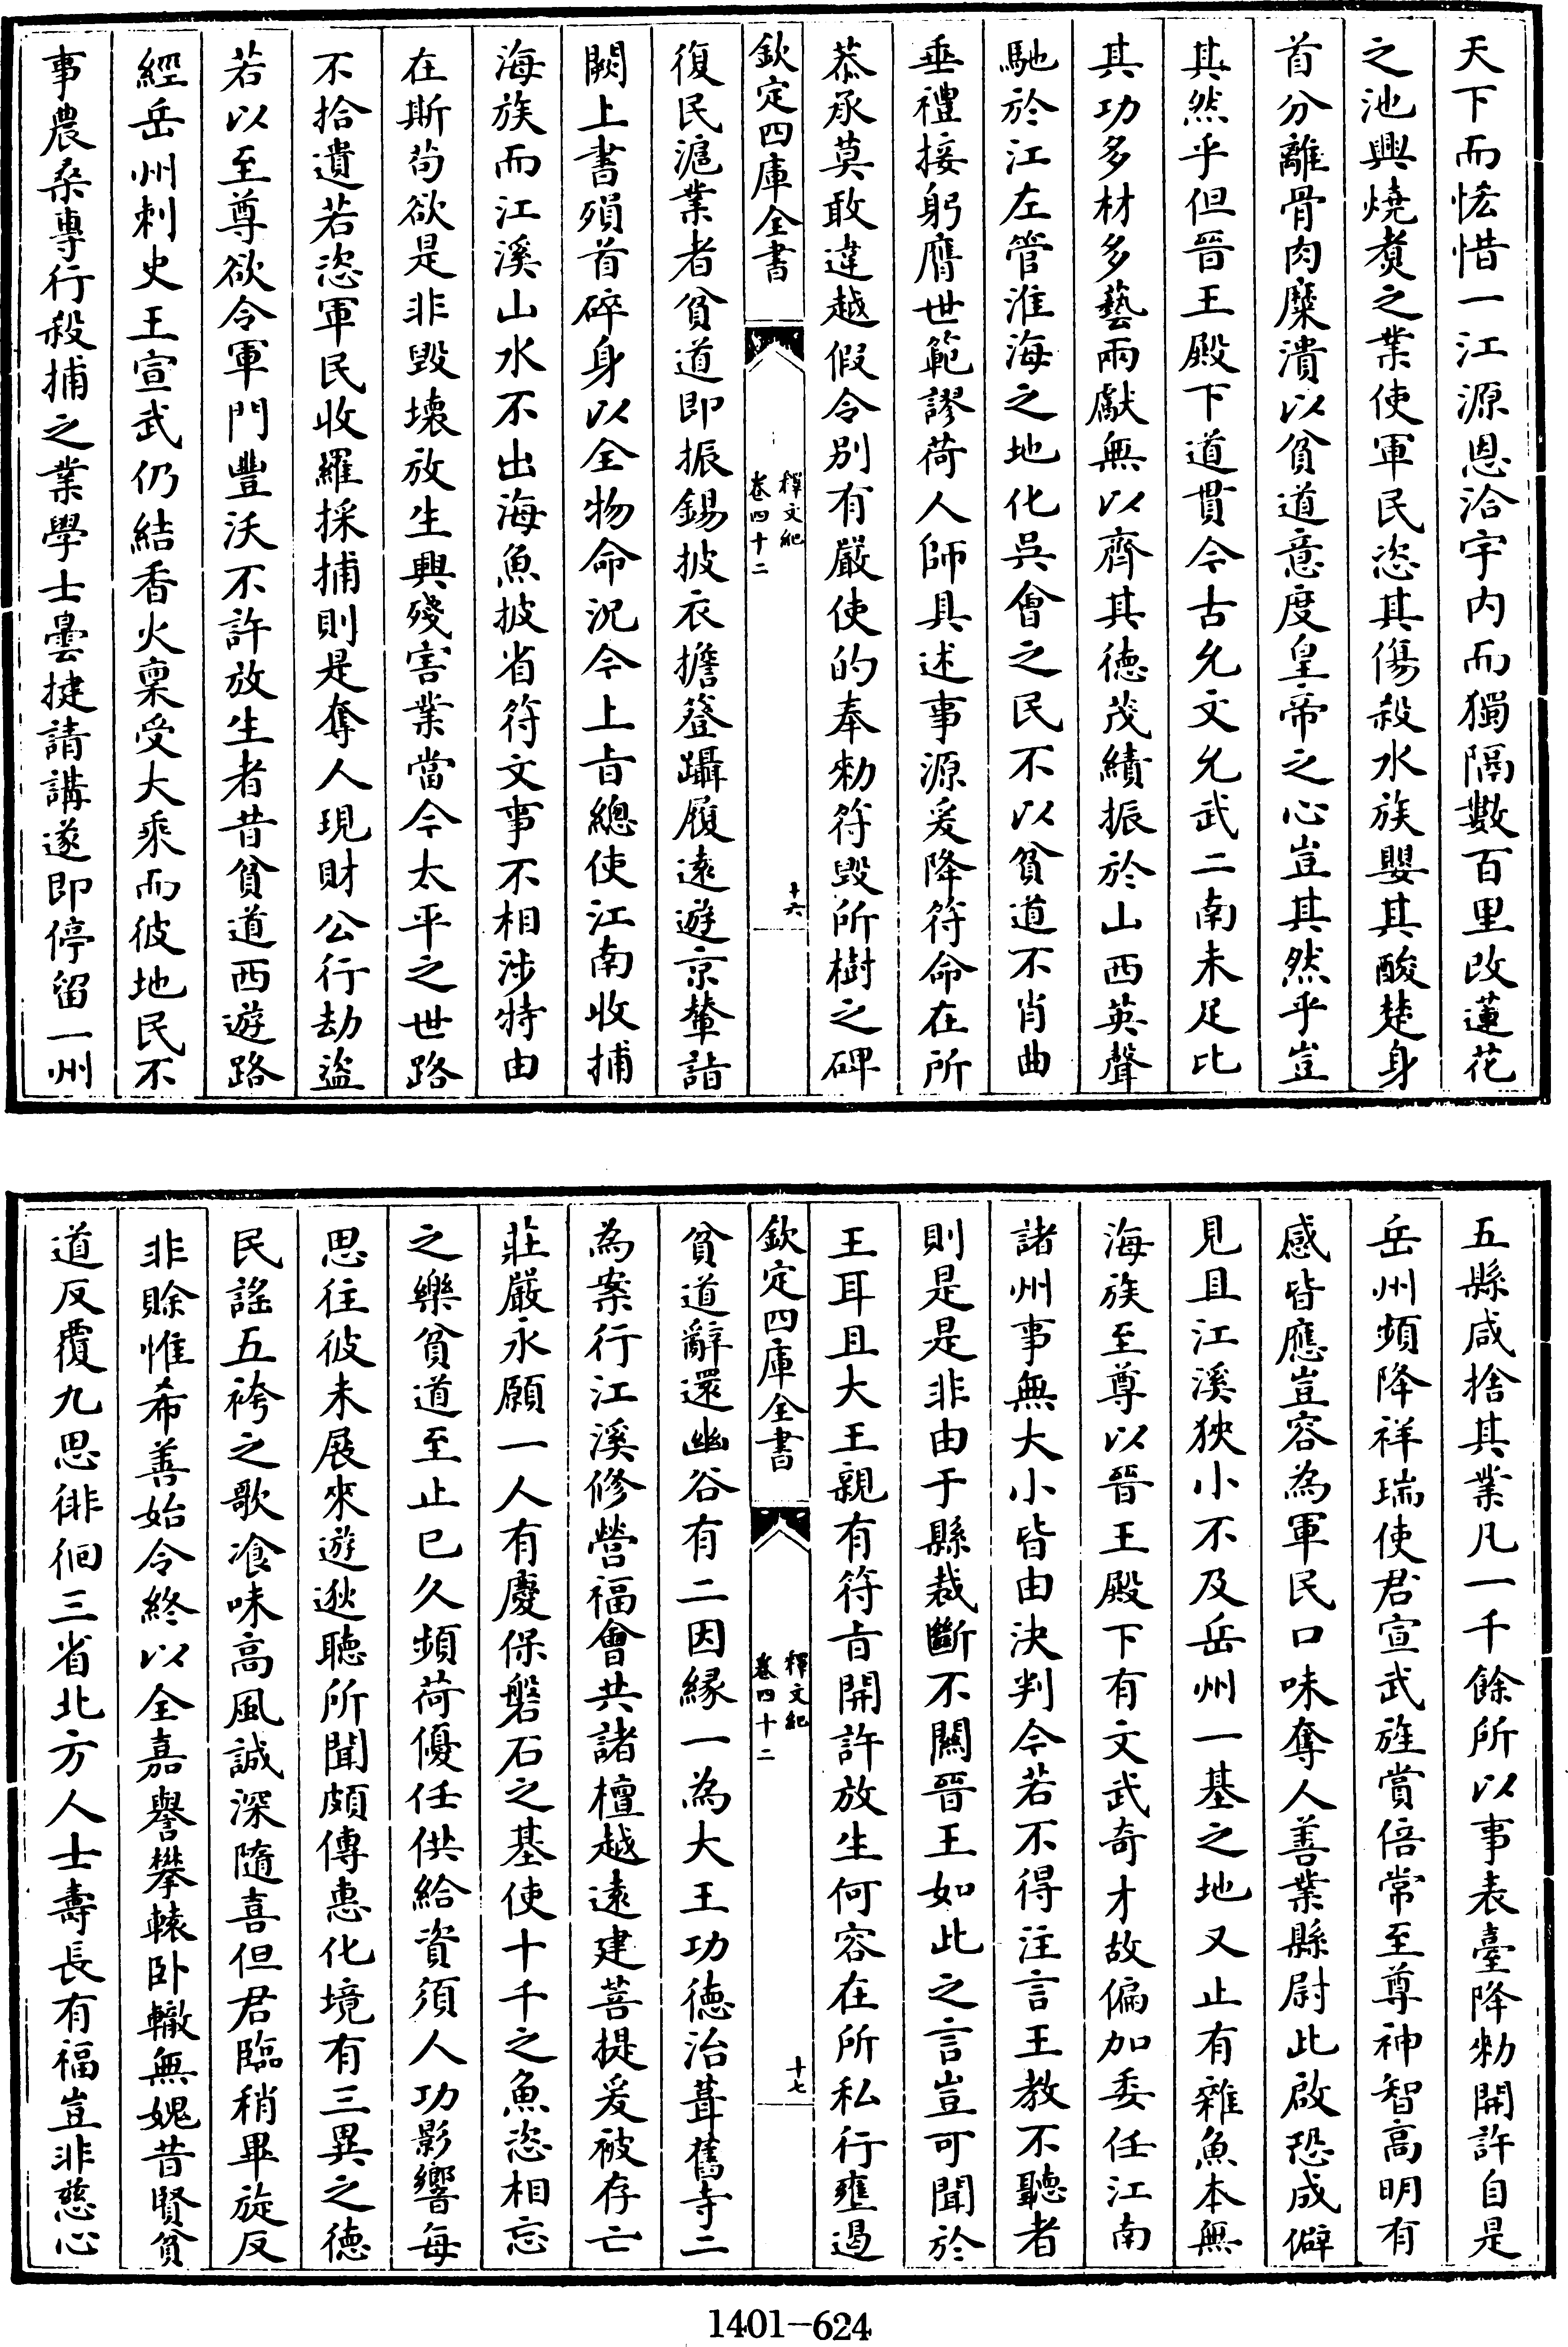 天下而恡惜一江源恩洽宇内而獨隔數百里改蓮花
之池興燒煑之業使軍民恣其傷殺水族嬰其酸楚身
首分離骨肉糜潰以貧道意度皇帝之心豈其然乎豈
其然乎但晉王殿下道貫今古允文允武二南未足比
其功多材多藝兩獻無以齊其徳茂績振於山西英聲
馳於江左管淮海之地化吳會之民不以貧道不肖曲
垂禮接躬膺世範謬荷人師具述事源爰降符命在所
恭承莫敢違越假令别有嚴使的奉勅符毁所樹之碑
欽定四庫全書
釋文紀
卷四十二
十六
復民滬業者貧道即振錫披衣擔簦躡履逺遊京輦詣
闕上書殞首碎身以全物命況今上㫖總使江南收捕
海族而江溪山水不出海魚披省符文事不相涉特由
在斯茍欲是非毁壊放生興殘害業當今太平之世路
不拾遺若恣軍民收羅採捕則是奪人現財公行劫盜
若以至尊欲令軍門豐沃不許放生者昔貧道西遊路
經岳州刺史王宣武仍結香火禀受大乘而彼地民不
事農桑專行殺捕之業學士曇捷請講遂即停留一州
五縣咸捨其業凡一千餘所以事表臺降勅開許自是
岳州頻降祥瑞使君宣武旌賞倍常至尊神智高明有
感皆應豈容為軍民口味奪人善業縣尉此啟恐成僻
見且江溪狹小不及岳州一基之地又止有雜魚本無
海族至尊以晉王殿下有文武奇才故偏加委任江南
諸州事無大小皆由決判今若不得注言王教不聽者
則是是非由于縣裁斷不闗晉王如此之言豈可聞於
王耳且大王親有符㫖開許放生何容在所私行壅遏
欽定四庫全書
釋文紀
卷四十二
十七
貧道辭還幽谷有二因縁一為大王功徳治葺舊寺二
為案行江溪修營福會共諸檀越逺建菩提爰被存亡
莊嚴永願一人有慶保磐石之基使十千之魚恣相忘
之樂貧道至止已久頻荷優任供給資須人功影響每
思往彼未展來遊逖聽所聞頗傳惠化境有三異之徳
民謡五袴之歌飡味高風誠深隨喜但君臨稍畢旋反
非賒惟希善始令終以全嘉譽攀轅卧轍無媿昔賢貧
道反覆九思徘徊三省北方人士壽長有福豈非慈心
1401-624